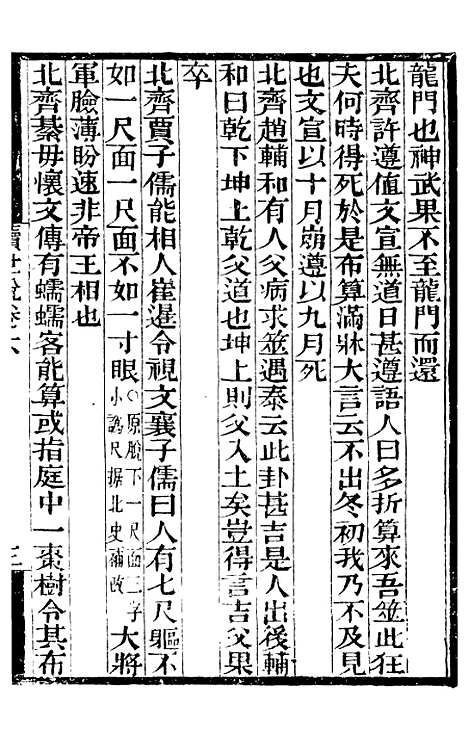 龍門也神武果不至龍門而還
北齊許遵值文宣無道日甚遵語人曰多折算來吾筮此狂
夫何時得死於是布算滿牀大言云不出冬初我乃不及見
也文宣以十月崩遵以九月死
北齊趙輔和有人父病求筮遇泰云此卦甚吉是人出後輔
和曰乾下坤上乾父道也坤上則父入土矣豈得言吉父果
卒
北齊賈子儒能相人崔暹令視文襄子儒曰人有七尺軀不
如一尺面一尺面不如一寸眼○原脫下一尺面三字小譌尺据北史補改大將
軍臉薄盼速非帝王相也
北齊綦毋懷文傳有蠕蠕客能算或指庭中一棗樹令其布
續世說卷六
三